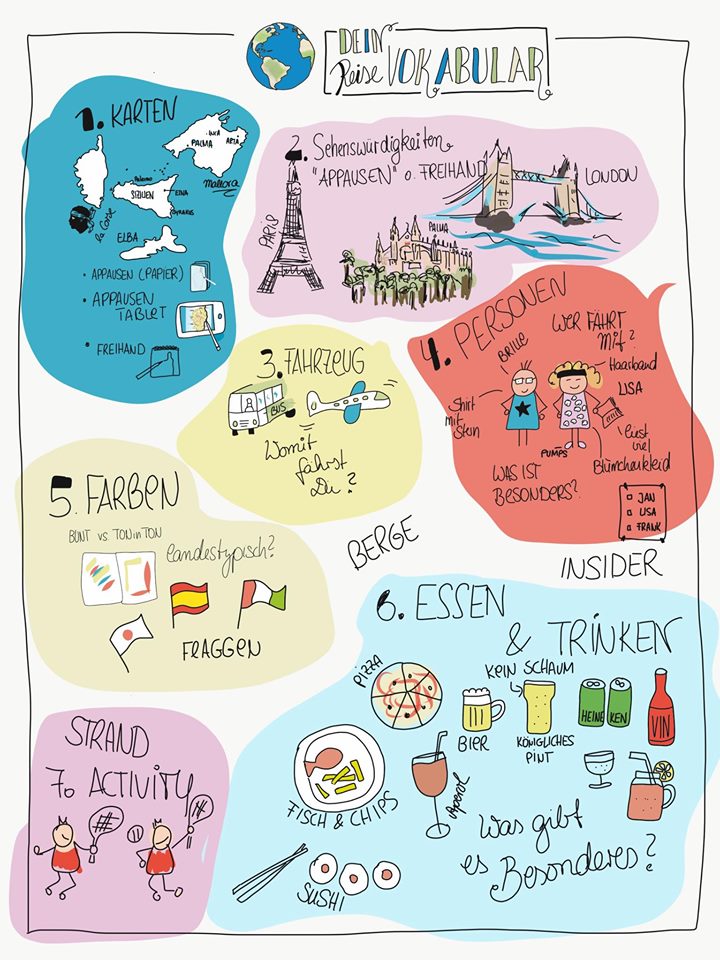 DEIN
Reise VOKABULAR
1. KARTEN
INCA
PALMA ARTÀ
Mallorca
Palermo
SIZILIEN ETNA
SYRAKUS
La Corse
ELBA
• APPAUSEN (PAPIER)
• APPAUSEN
TABLET
• FREIHAND
2. Sehenswürdigkeiten
"APPAUSEN" o. FREIHAND
PARIS
PALMA
LONDON
3. FAHRZEUG
BUS
Womit
fährst
Du?
4. PERSONEN
WER FÄHRT
Mit?
BRILLE
Haarband
LISA
Shirt
mit
Stern
PUMPS
liest viel
Blümchenkleid
WAS IST
BESONDERS?
JAN
LISA
FRANK
5. FARBEN
BUNT vs. TON in TON
landestypisch?
FRAGGEN
BERGE
INSIDER
6. ESSEN
& TRINKEN
PIZZA
KEIN SCHAUM
BIER
KÖNIGLICHES
PINT
HEINE KEN
VIN
FISCH & CHIPS
Aperol
SUSHI
Was gibt
es Besonderes?
STRAND
7. ACTIVITY